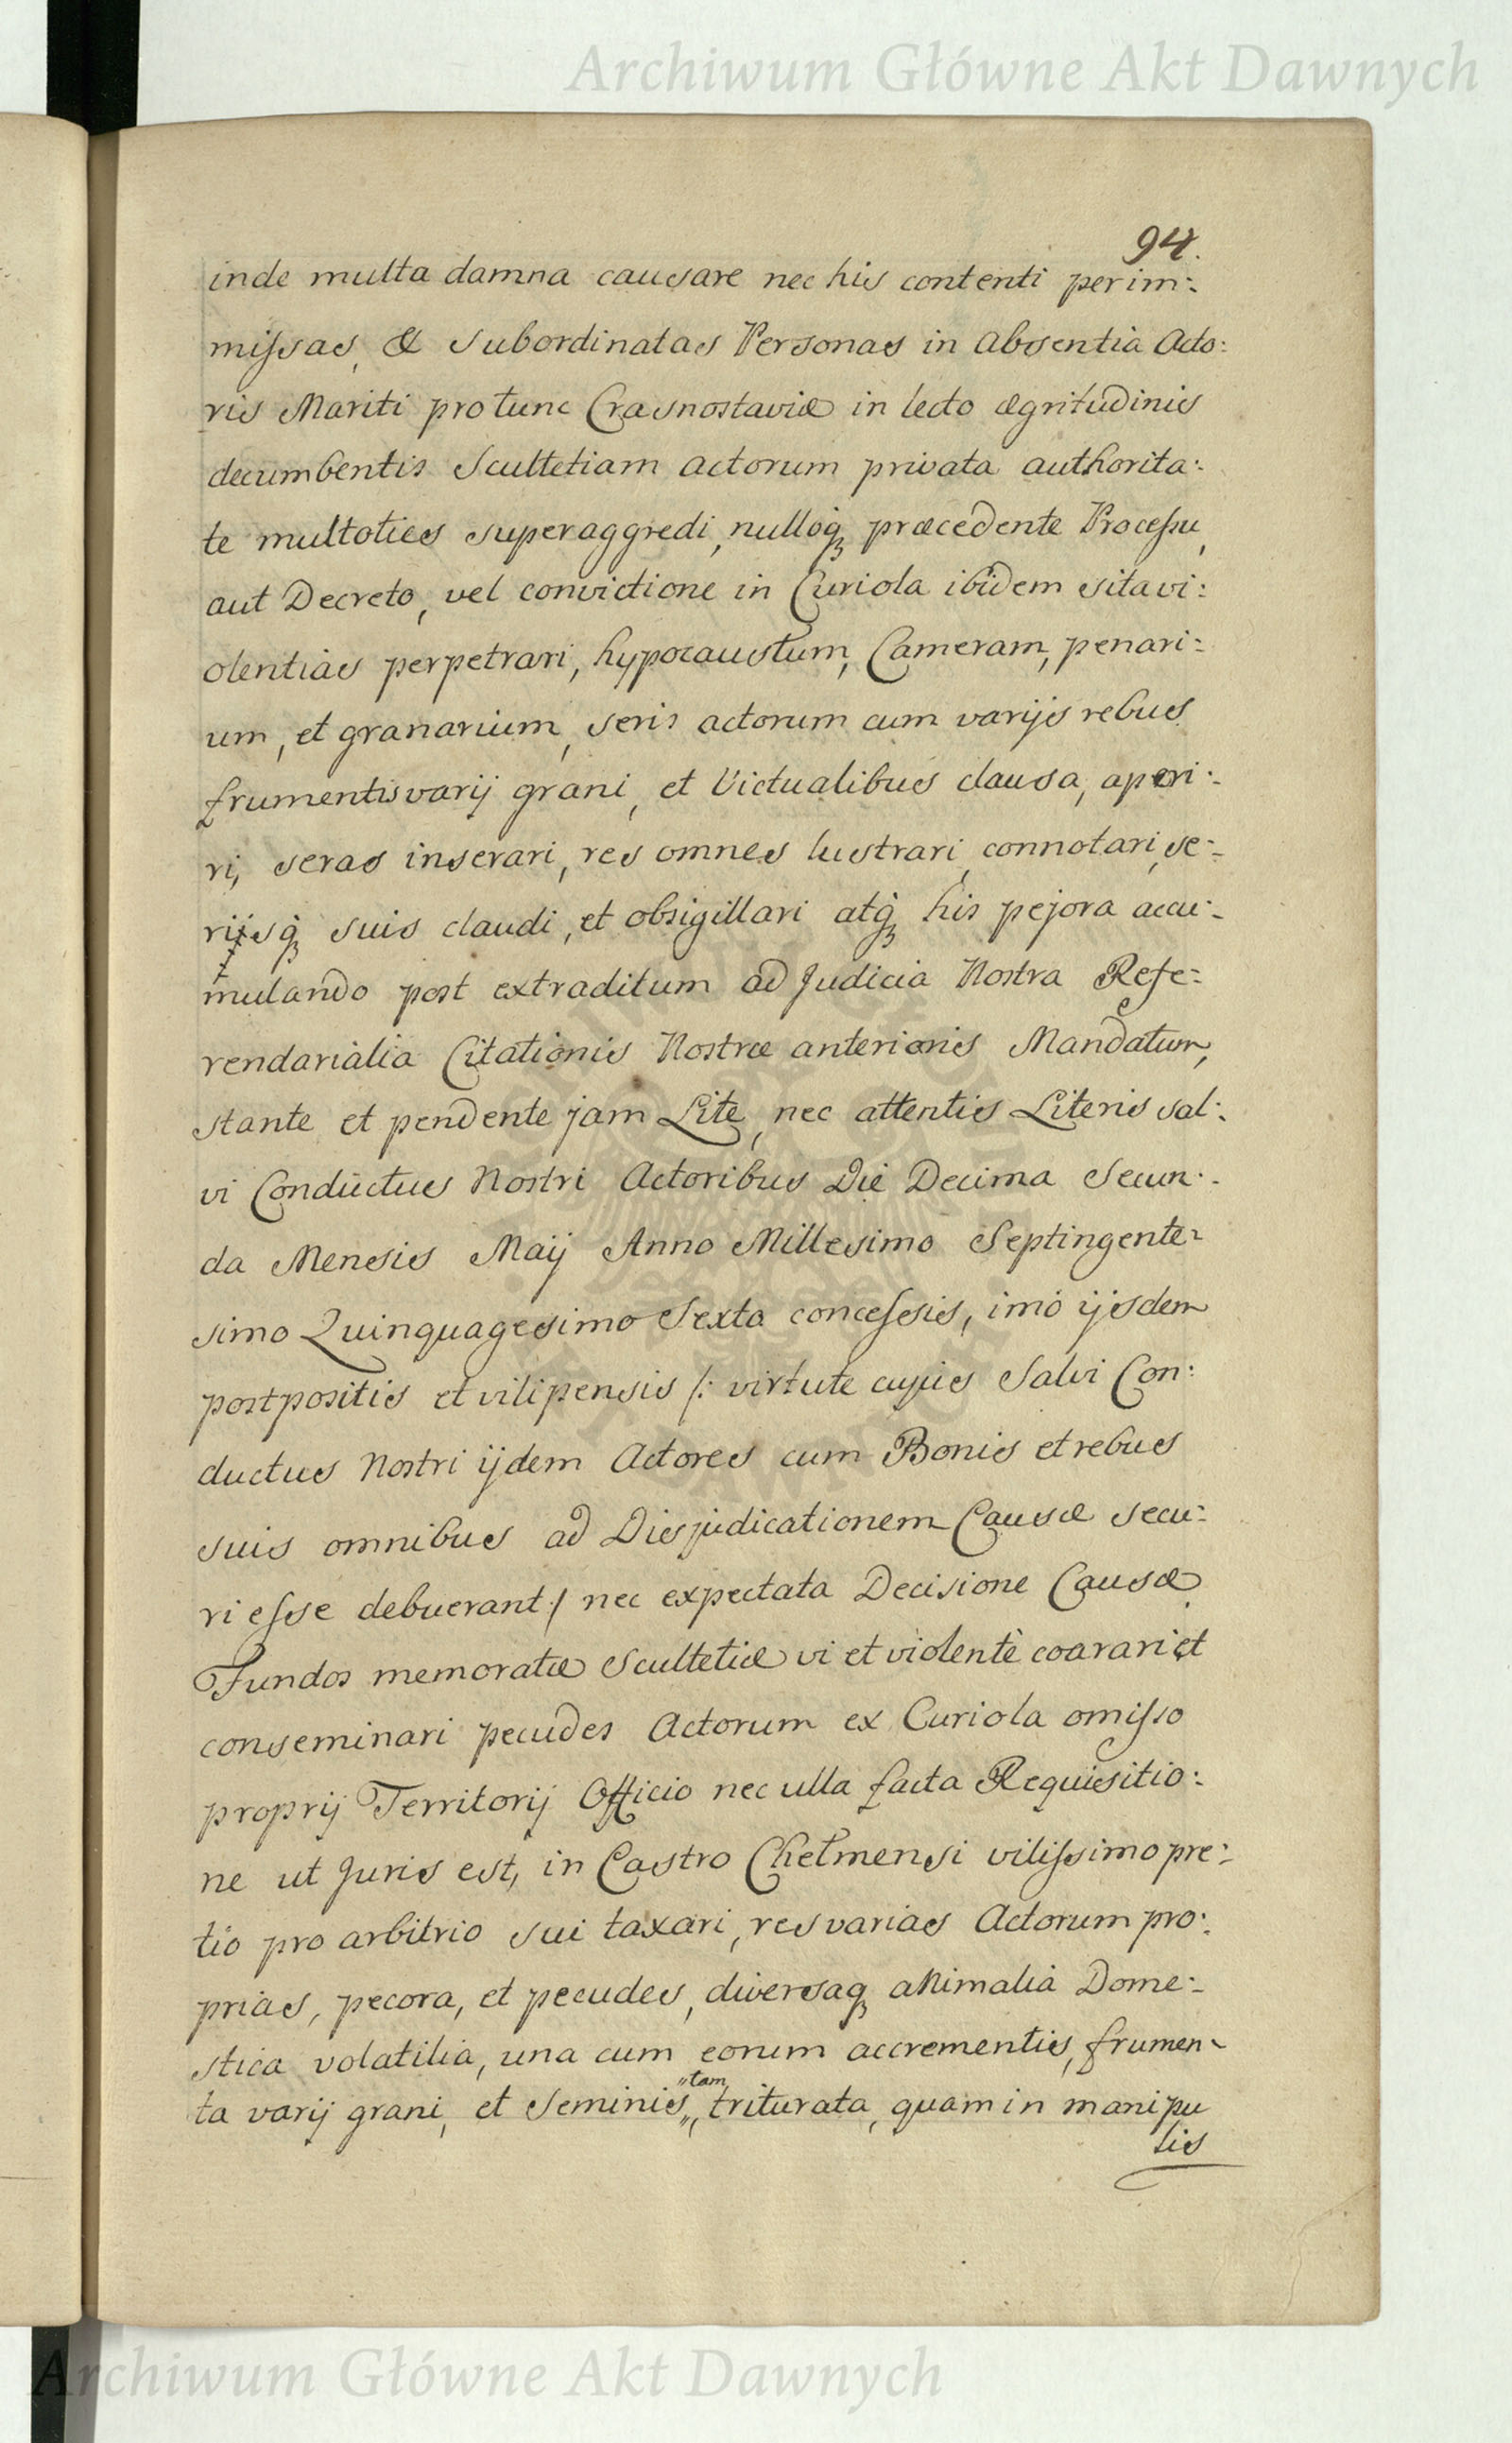 Archiwum Główne Akt Dawnych
94.
inde multa damna causare nec his contenti per im:
missas, & subordinatas Personas in absentia Acto:
ris Mariti protunc Crasnostaviæ in lecto ægritudinis
decumbentis Scultetiam actorum privata authorita:
te multoties superaggredi, nulloq, præcedente Processu,
aut Decreto, vel convictione in Curiola ibidem sita vi:
olentias perpetrari, hypocaustum, Cameram, penari:
um, et granarium, seris actorum cum varijs rebus
frumentis varij grani, et Victualibus clausa, aperi:
ri, seras inserari, res omnes lustrari, connotari, se:
rijsq, suis claudi, et obsigillari atq, his pejora accu:
mulando post extraditum ad Judicia Nostra Refe:
rendarialia Citationis Nostræ anterioris Mandatum,
stante et pendente jam Lite, nec attentis Literis sal:
vi Conductus Nostri Actoribus Die Decima Secun:
da Mensis Maij Anno Millesimo Septingente:
simo Quinquagesimo Sexto concessis, imò ijsdem
postpositis et vilipensis /: virtute cujus Salvi Con:
ductus Nostri ijdem Actores cum Bonis et rebus
suis omnibus ad Disjudicationem Causæ secu:
ri esse debuerant :/ nec expectata Decisione Causæ
Fundos memoratæ Scultetiæ vi et violentè coarari et
conseminari pecudes Actorum ex Curiola omisso
proprij Territorij Officio nec ulla facta Requisitio:
ne ut Juris est, in Castro Chełmensi vilissimo pre:
tio pro arbitrio sui taxari, res varias Actorum pro:
prias, pecora, et pecudes, diversaq, animalia Dome:
stica volatilia, una cum eorum accrementis, frumen:
ta varij grani, et Seminis, "tam" triturata, quam in manipu
lis
Archiwum Główne Akt Dawnych